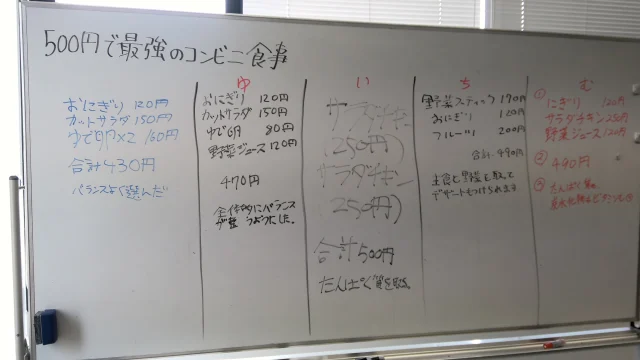 500円で最強のコンビニ食事
おにぎり 120円
カットサラダ 150円
ゆで卵×2 160円
合計430円
バランスよく選んだ
ゆ
おにぎり 120円
カットサラダ 150円
ゆで卵 80円
野菜ジュース 120円
470円
全体的にバランス
が整うようにした。
い
サラダチキン
250円)
サラダチキン
250円)
合計500円
たんぱく質を取る。
ち
野菜スティック 170円
おにぎり 120円
フルーツ 200円
合計490円
主食と野菜を取って
デザートもつけられる
む
① にぎり 120円
サラダチキン 250円
野菜ジュース 120円
② 490円
③ たんぱく質、
炭水化物、ビタミン